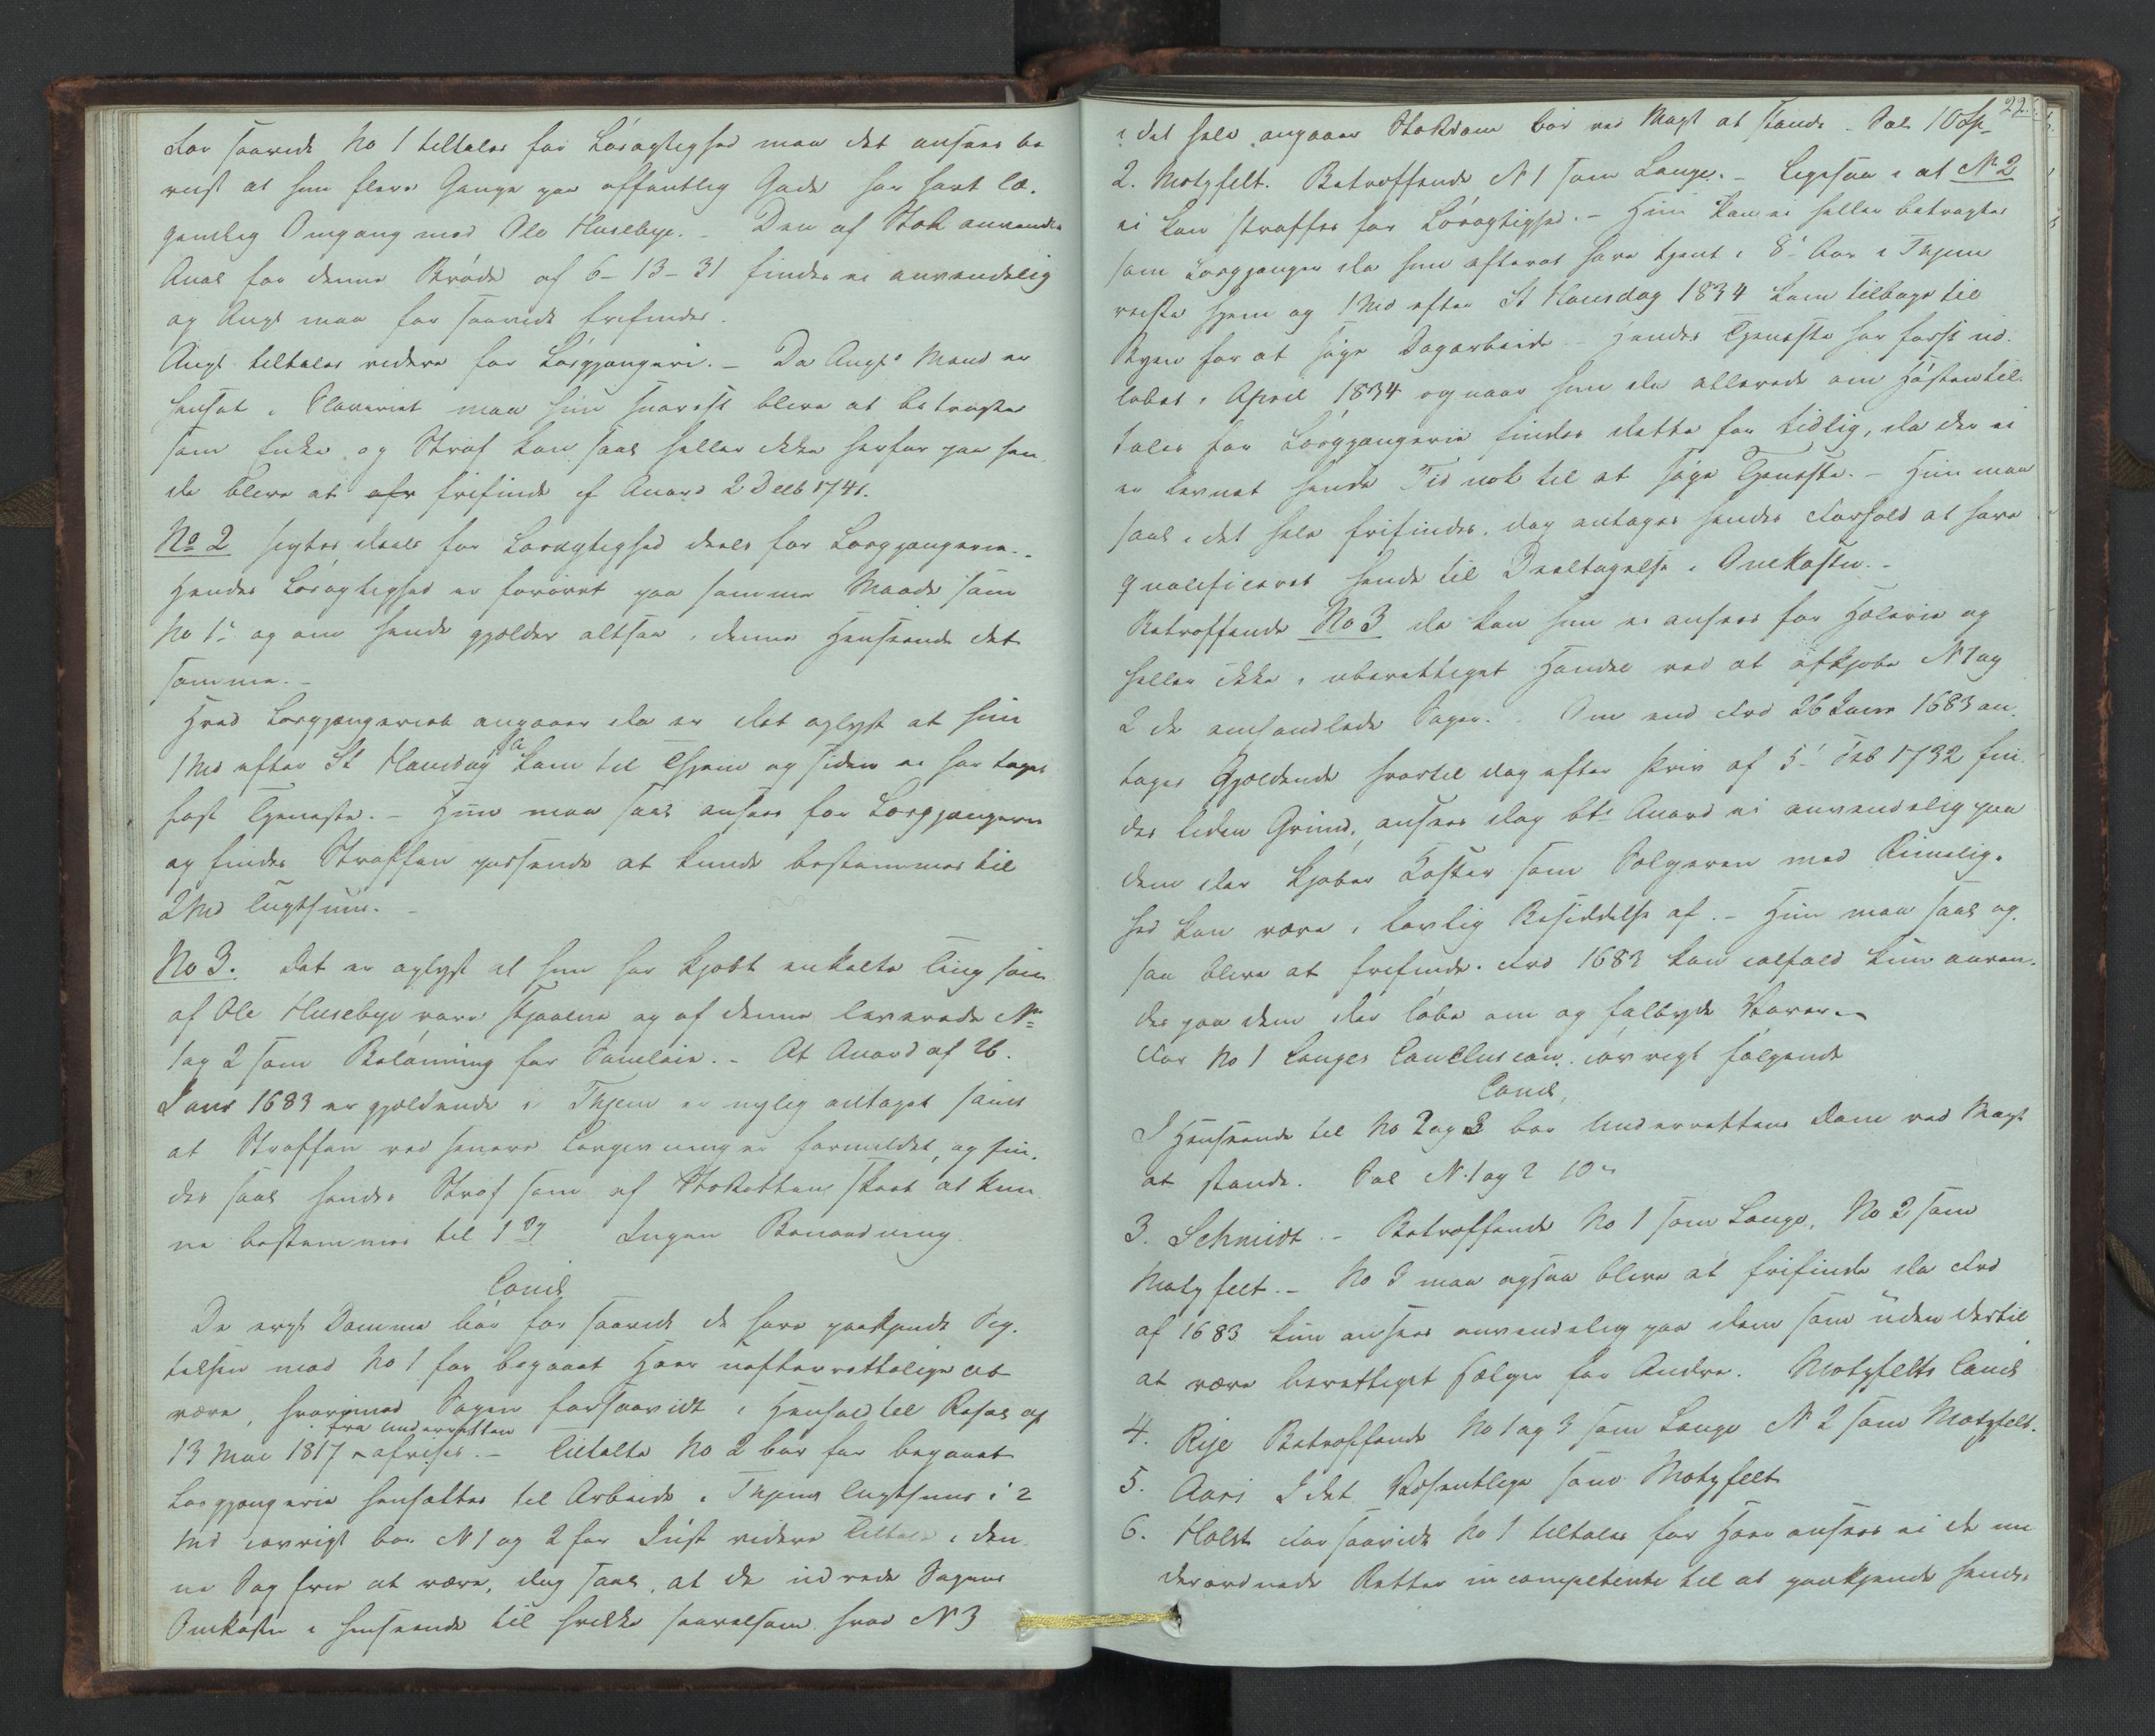 For saavidt No 1 tiltales for Løsagtighed maa det ansees be
viist at hun flere Gange paa offentlig Gade har havt læ-
gemlig Omgang med Ole Husebye. - Den af StOR anvendte
Anal for denne Brøde af 6-13-31 findes ei anvendelig
og Angt maa for saavidt frifindes.
Angt tiltales videre for Løsgjængeri. - Da Angts Mand er
hensat i Slaveriet maa hun snarest blive at betragte
som Enke og Straf kan saal heller ikke herfor paa hen
de blive at frifinde cf Anord 2 Decb 1741.
No 2 sigtes deels for Løsagtighed deels for Løsgjængerie. -
Hendes Løsagtighed er forøvet paa samme Maade som
No 1s og om hende gjælder altsaa i denne Henseende det
samme. -
Hvad Løsgjængeriet angaaer da er det oplyst at hun
1 Md efter St Hansdag kom til Thjem og siden ei har taget
fast Tjeneste. - Hun maa saal ansees for Løsgjængerie
og findes Straffen passende at kunde bestemmes til
2 Md Tugthuus. -
No 3. Det er oplyst at hun har kjøbt enkelte Ting som
af Ole Husebye vare stjaalne og af denne leverede No
1 og 2 som Belønning for Samleie. - At Anord af 26.
Janr 1683 er gjældende i Thjem er nylig antaget samt
at Straffen ved senere Lovgivning er formildet, og fin-
des saal hendes Straf som af StORetten skeet at kun
ne bestemmes til Ingen Benaadning.
Concl
De ergt Domme bør for saavidt de have paakjendt Sig-
telsen mod No 1 for begaaet Hoer uefterrettelige at
være, hvorimod Sagen forsaavidt i Henhold til Resol af
13 Mai 1817 fra Underretten afvises. - Tiltalte No 2 bør for begaaet
Løsgjængerie hensættes til Arbeide i Thjems Tugthuus i 2
Md iøvrigt bør N 1 og 2 for Just videre Tiltale i den
ne Sag frie at være, dog saal. at de udrede Sagens
Omkostn i henseende til hvilke saavelsom hvad N 3
22.
i det hele angaaer StORdom bør ved Magt at stande - Sal 10 Sp
2. Motzfelt. Betræffende N 1 som Lange. - Ligesaa i at N 2
ei kan straffes for Løsagtighed. - Hun kan ei heller betragtes
som Løsgjænger da hun efterat have tjent i 8 Aar i Thjem
reiste hjem og 1 Md efter St Hansdag 1834 kom tilbage til
Byen for at søge Dagarbeide - Hendes Tjeneste har først ud-
løbet i April 1834 og naar hun da allerede om Høsten til-
tales for Løsgjængerie findes dette for tidlig, da der ei
er levnet hende Tid nok til at søge Tjeneste. - Hun maa
saal i det hele frifindes, dog antages hendes Forhold at have
qvalificeret hende til Deeltagelse i Omkostn. -
Betræffende No 3 da kan hun ei ansees for Hæleri og
heller ikke i uberettiget Handel ved at afkjøbe N 1 og
2 de omhandlede Sager. Om end Frd 26 Janr 1683 an-
tages Gjældende hvortil dog efter Skriv af 5 Feb 1732 fin-
des liden Grund, ansees dog bte Anord ei anvendelig paa
dem der kjøber Koster som Sælgeren med Rimelig-
hed kan være i lovlig Besiddelse af. - Hun maa saal og-
saa blive at frifinde. Frd 1683 kan ialfald kun anven-
des paa dem der løbe om og falbyde Varer. -
For No 1 Langes Conclusion. iøvrigt følgende
Concl,
I Henseende til No 2 og 3 bør Underrettens Dom ved Magt
at stande. Sal N. 1 og 2 10
3. Schmidt. - Betræffende No 1 som Lange, No 2 som
Motzfelt. - No 3 maa ogsaa blive at frifinde da Frd
af 1683 kun ansees anvendelig paa dem som uden dertil
at være berettiget sælger for Andre. Motzfelts Concl
4. Rije Betræffende No 1 og 3 som Lange N 2 som Motzfelt.
5. Aars I det Væsentlige som Motzfelt
6. Holst For saavidt No 1 tiltales for Hoer ansees ei de un
derordnede Retter incompetente til at paakjende hendes